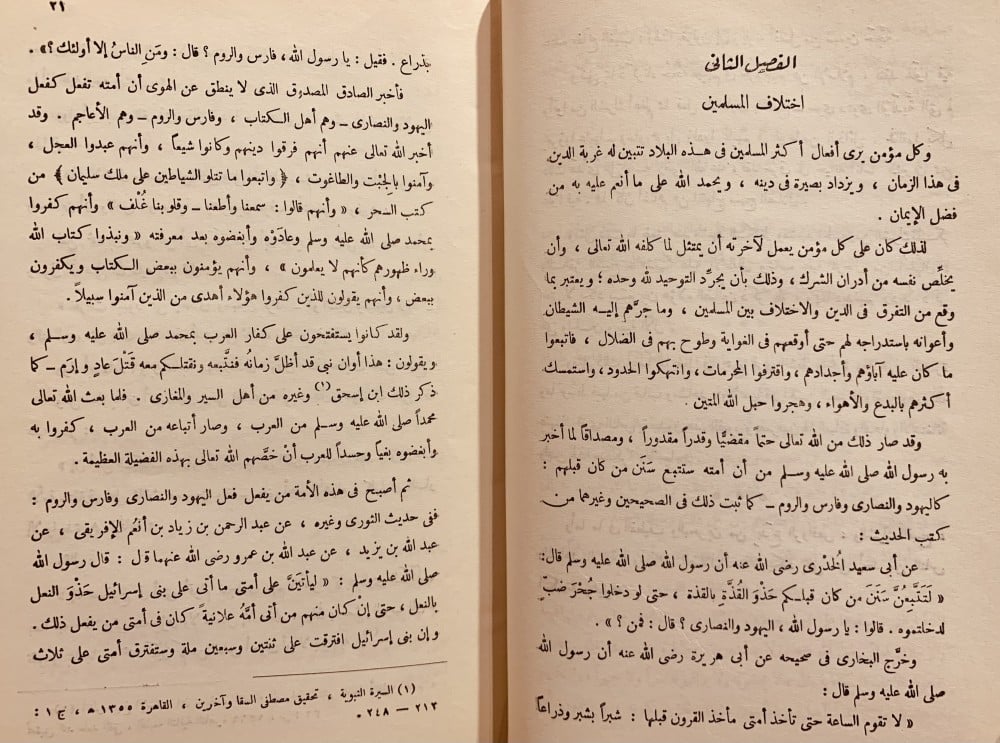 الفصل الثانى
اختلاف المسلمين
وكل مؤمن يرى أفعال أكثر المسلمين فى هذه البلاد تتبين له غربة الدين
فى هذا الزمان ، ويزداد بصيرة فى دينه ، ويحمد الله على ما أنعم عليه به من
فضل الإيمان .
لذلك كان على كل مؤمن يعمل لآخرته أن يمتثل لما كلفه الله تعالى ، وأن
يخلِّص نفسه من أدران الشرك ، وذلك بأن يجرِّد التوحيد لله وحده ؛ ويعتبر بما
وقع من التفرق فى الدين والاختلاف بين المسلمين ، وما جرَّهم إليه الشيطان
وأعوانه باستدراجه لهم حتى أوقعهم فى الغواية وطوح بهم فى الضلال ، فاتبعوا
ما كان عليه آباؤهم وأجدادهم ، واقترفوا المحرمات ، وانتهكوا الحدود ، واستمسك
أكثرهم بالبدع والأهواء ، وهجروا حبل الله المتين .
وقد صار ذلك من الله تعالى حتماً مقضيًّا وقدراً مقدوراً ، ومصداقاً لما أخبر
به رسول الله صلى الله عليه وسلم من أن أمته ستتبع سَنَن من كان قبلهم :
كاليهود والنصارى وفارس والروم ــ كما ثبت ذلك فى الصحيحين وغيرهما من
كتب الحديث :
عن أبى سعيد الخُدْرى رضى الله عنه أن رسول الله صلى الله عليه وسلم قال :
« لَتَتَّبِعُنَّ سَنَن من كان قبلكم حَذْوَ القُذَّةِ بالقذة ، حتى لو دخلوا جُحْرَ ضبٍّ
لدخلتموه . قالوا : يا رسول الله ، اليهود والنصارى ؟ قال : فمن ؟ » .
وخرَّج البخارى فى صحيحه عن أبى هريرة رضى الله عنه أن رسول الله
صلى الله عليه وسلم قال :
« لا تقوم الساعة حتى تأخذ أمتى مأخذ القرون قبلها : شبراً بشبر وذراعاً
٢١
بذراع . فقيل : يا رسول الله ، فارس والروم ؟ قال : ومَن الناسُ إلا أولئك ؟ » .
فأخبر الصادق المصدوق الذى لا ينطق عن الهوى أن أمته تفعل كفعل
اليهود والنصارى ــ وهم أهل الكتاب ، وفارس والروم ــ وهم الأعاجم . وقد
أخبر الله تعالى عنهم أنهم فرقوا دينهم وكانوا شيعاً ، وأنهم عبدوا العجل ،
وآمنوا بالجِبْت والطاغوت ، ﴿ واتبعوا ما تتلو الشياطين على ملك سليمان ﴾ من
كتب السحر ، « وأنهم قالوا : سمعنا وأطعنا ــ وقلوبنا غُلْف » وأنهم كفروا
بمحمد صلى الله عليه وسلم وعادَوْه وأبغضوه بعد معرفته « ونبذوا كتاب الله
وراء ظهورهم كأنهم لا يعلمون » ، وأنهم يؤمنون ببعض الكتاب ويكفرون
ببعض ، وأنهم يقولون للذين كفروا هؤلاء أهدى من الذين آمنوا سبيلاً .
ولقد كانوا يستفتحون على كفار العرب بمحمد صلى الله عليه وسلم ،
ويقولون : هذا أوان نبى قد أظلَّ زمانُه فنتَّبعه ونقتلكم معه قَتْلَ عادٍ وإرَم ــ كما
ذكر ذلك ابن إسحق (١) وغيره من أهل السير والمغازى . فلما بعث الله تعالى
محمداً صلى الله عليه وسلم من العرب ، وصار أتباعه من العرب ، كفروا به
وأبغضوه بغياً وحسداً للعرب أنْ خصَّهم الله تعالى بهذه الفضيلة العظيمة .
ثم أصبح فى هذه الأمة من يفعل فعل اليهود والنصارى وفارس والروم :
ففى حديث الثورى وغيره ، عن عبد الرحمن بن زياد بن أنعُم الإفريقى ، عن
عبد الله بن يزيد ، عن عبد الله بن عمرو رضى الله عنهما قال : قال رسول الله
صلى الله عليه وسلم : « ليأتينَّ على أمتى ما أتى على بنى إسرائيل حَذْوَ النعل
بالنعل ، حتى إنْ كان منهم من أتى أمَّهُ علانيةً كان فى أمتى من يفعل ذلك .
وإن بنى إسرائيل افترقت على ثنتين وسبعين ملة وستفترق أمتى على ثلاث
(١) السيرة النبوية ، تحقيق مصطفى السقا وآخرين ، القاهرة ١٣٥٥ هـ ، ج ١ :
٢١٣ — ٢٤٨ .